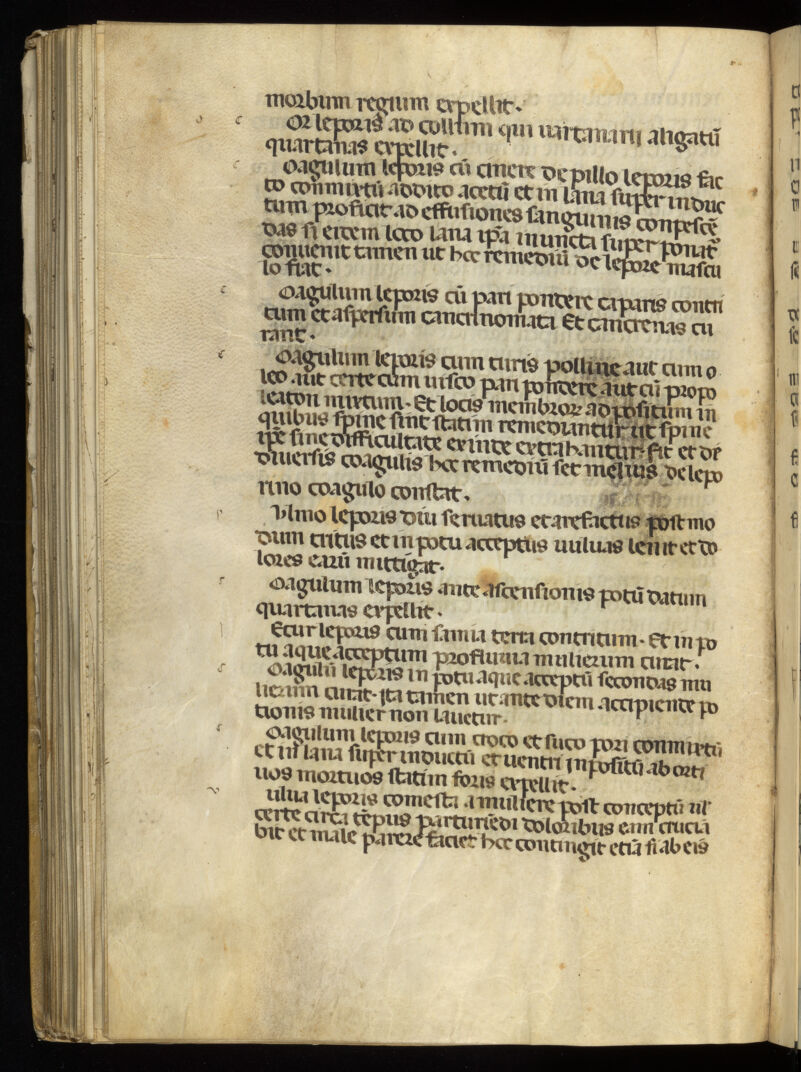 morbum regium expellit.
Or leporis ad collum qui uartanarij aligatū
quartanas expellit.
oagulum leporis cū cinere de pillo leporis fac
to conmixtū addito acetū et in lana super induc
tum proficit ad effusiones sanguinis conpescē
das si eidem loco lana ipa inuncta super ponat
conuenit tamen ut hec remediū de lepore mascu
lo fiat.
oagulum leporis cū pari pondere caparis contri
tum et aspersum cancrinomata Et cancrenas cu
rant.
oagulum leporis cum turis polline aut cum o
leo aut certe cum uisco pari pondere aut cū propo
leaton mixtum. Et locis membror adpositum in
quibus spine sint statim remediantur ut spine
ipe sine difficultate exinte extrahantur. fit et de
diuersis coagulis hec remediū set melius de lepo
rino coagulo constat.
Vlmo leporis diu seruatus et arefactus post mo
dum tritus et in potu acceptus uuluas lenit et do
lores earū mittigat.
oagulum leporis ante ascensionis potū datum
quartanas expellit.
Ecur leporis cum samia terra contritum. Et in po
tu aque acceptum profluuia mulierum curat.
oagulū leporis in potu aque acceptū secondas mu
lierum curat. ita tamen ut ante diem accipiende po
tionis mulier non lauetur.
oagulum leporis cum croco et suco pori conmixtū
et in lana super inductū et uentri inpositū aborti
uos mortuos statim foris expellit.
uluа leporis comesta a muliere post conceptū ul
certe circa tēpus parturiēdi doloribus eam crucia
bit et male parere faciet hec contingit etiā si ab eis